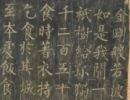 金剛般若波
如是我聞一
祇樹給孤獨
千二百五十
食時著衣持
乞食於其城
至本處飯食